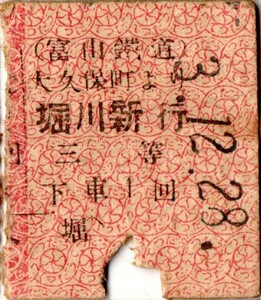 (富山鐵道)
大久保町より
堀川新行
三等
下車1回
堀
3.12.28